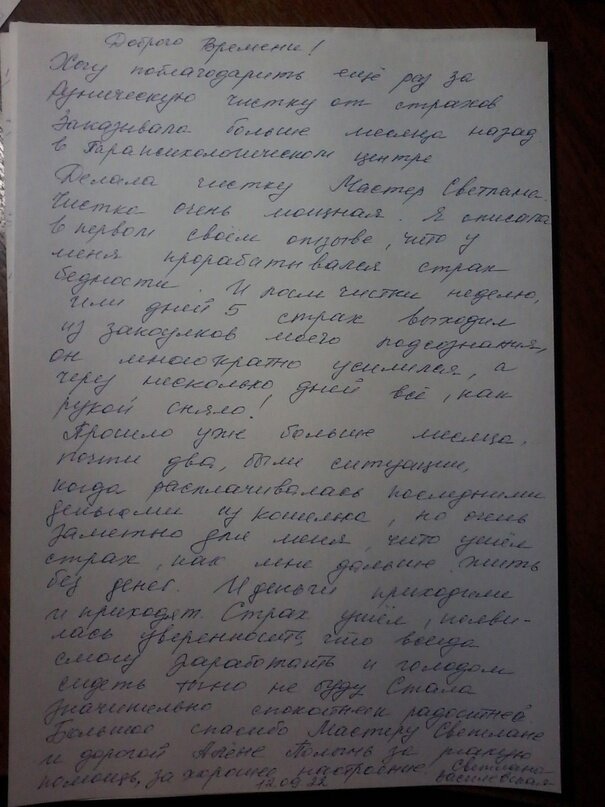 Доброго времени!
Хочу поблагодарить ещё раз за
Руническую чистку от страхов
Заказывала больше месяца назад
в Парапсихологическом центре
Делала чистку Мастер Светлана.
Чистка очень мощная. Я описала
в первом своём отзыве, что у
меня прорабатывался страх
бедности. И после чистки неделю,
или дней 5 страх выходил
из закоулков моего подсознания,
он многократно усилился, а
через несколько дней всё, как
рукой сняло!
Прошло уже больше месяца,
почти два, были ситуации,
когда расплачивалась последними
деньгами из кошелька, но очень
заметно для меня, что ушёл
страх, как мне дальше жить
без денег. И деньги приходили
и приходят. Страх ушёл, появи-
лась уверенность, что всегда
смогу заработать и голодом
сидеть точно не буду Стала
значительно спокойнее радостней.
Большое спасибо Мастеру Светлане
и дорогой Алёне Полынь за
помощь, за хорошее настроение. Светлана
12.09.22 Василевская